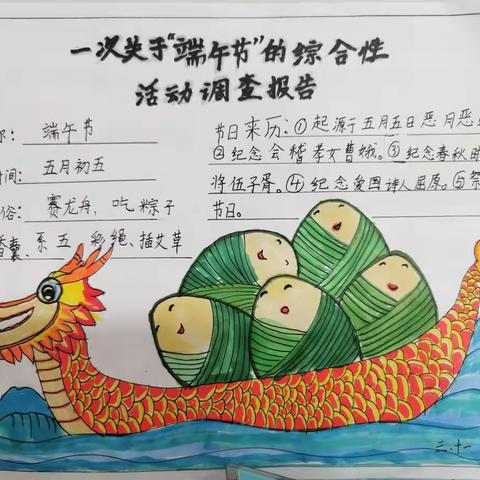 一次关于“端午节”的综合性
活动调查报告
称： 端午节
时间： 五月初五
俗： 赛龙舟，吃粽子
香囊、系五彩绳、插艾草
节日来历：①起源于五月五日恶月恶
②纪念会稽孝女曹娥。③纪念春秋时
将伍子胥。④纪念爱国诗人屈原。⑤祭
节日。
三、十一